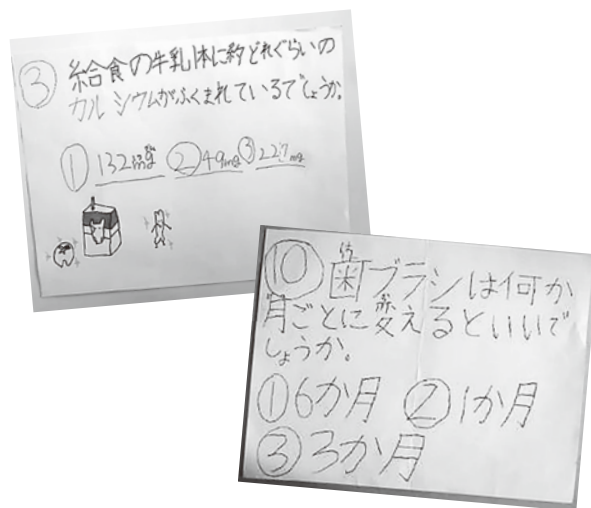 ③ 給食の牛乳1本に約どれぐらいの
カルシウムがふくまれているでしょうか。
① 132mg ② 49mg ③ 227mg
⑩ 歯ブラシは何か
月ごとに変えるといいで
しょうか。
① 6か月 ② 1か月
③ 3か月